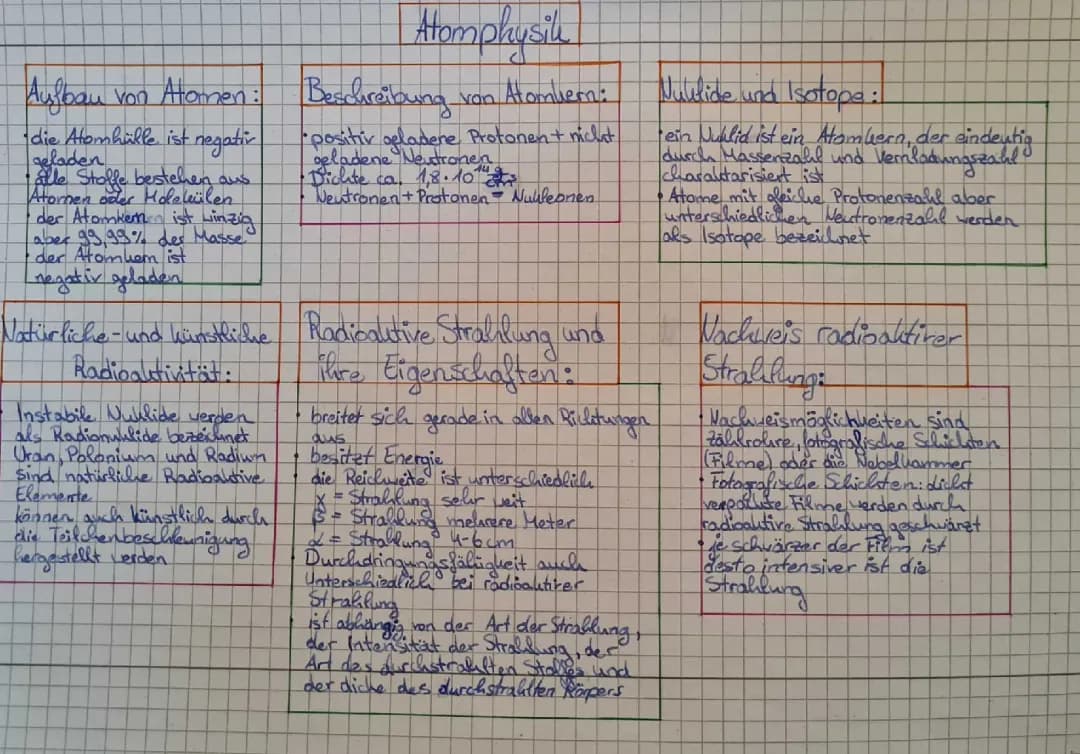 Atomphysik
Aufbau von Atomen:
• die Atomhülle ist negativ
geladen
• alle Stoffe bestehen aus
Atomen oder Molekülen
• der Atomkern ist winzig
aber 99,99% der Masse
• der Atomkern ist
negativ geladen
Beschreibung von Atomkern:
• positiv geladene Protonen + nicht
geladene Neutronen
• Dichte ca. 1,8·10¹⁴
• Neutronen + Protonen = Nukleonen
Nuklide und Isotope:
• ein Nuklid ist ein Atomkern, der eindeutig
durch Massenzahl und Kernladungszahl
charaktarisiert ist
• Atome mit gleiche Protonenzahl aber
unterschiedlichen Neutronenzahl werden
als Isotope bezeichnet
Natürliche- und künstliche
Radioaktivität:
• Instabile Nuklide werden
als Radionuklide bezeichnet
• Uran, Polonium und Radium
sind natürliche Radioaktive
Elemente
• können auch künstlich durch
die Teilchenbeschleunigung
hergestellt werden
Radioaktive Strahlung und
ihre Eigenschaften:
• breitet sich gerade in allen Richtungen
aus
• besitzt Energie
• die Reichweite ist unterschiedlich
γ = Strahlung sehr weit
β = Strahlung mehrere Meter
α = Strahlung 4-6cm
• Durchdringungsfähigkeit auch
Unterschiedlich bei radioaktiver
Strahlung
• ist abhängig von der Art der Strahlung,
der Intensität der Strahlung, der
Art des durchstrahlten Stoffes und
der diche des durchstrahlten Körpers
Nachweis radioaktiver
Strahlung:
• Nachweismöglichkeiten sind
Zählrohre, fotografische Schichten
(Filme) oder die Nebelkammer
• Fotografische Schichten: dicht
verpackte Filme werden durch
radioaktive Strahlung geschwärzt
• je schwärzer der Film ist
desto intensiver ist die
Strahlung